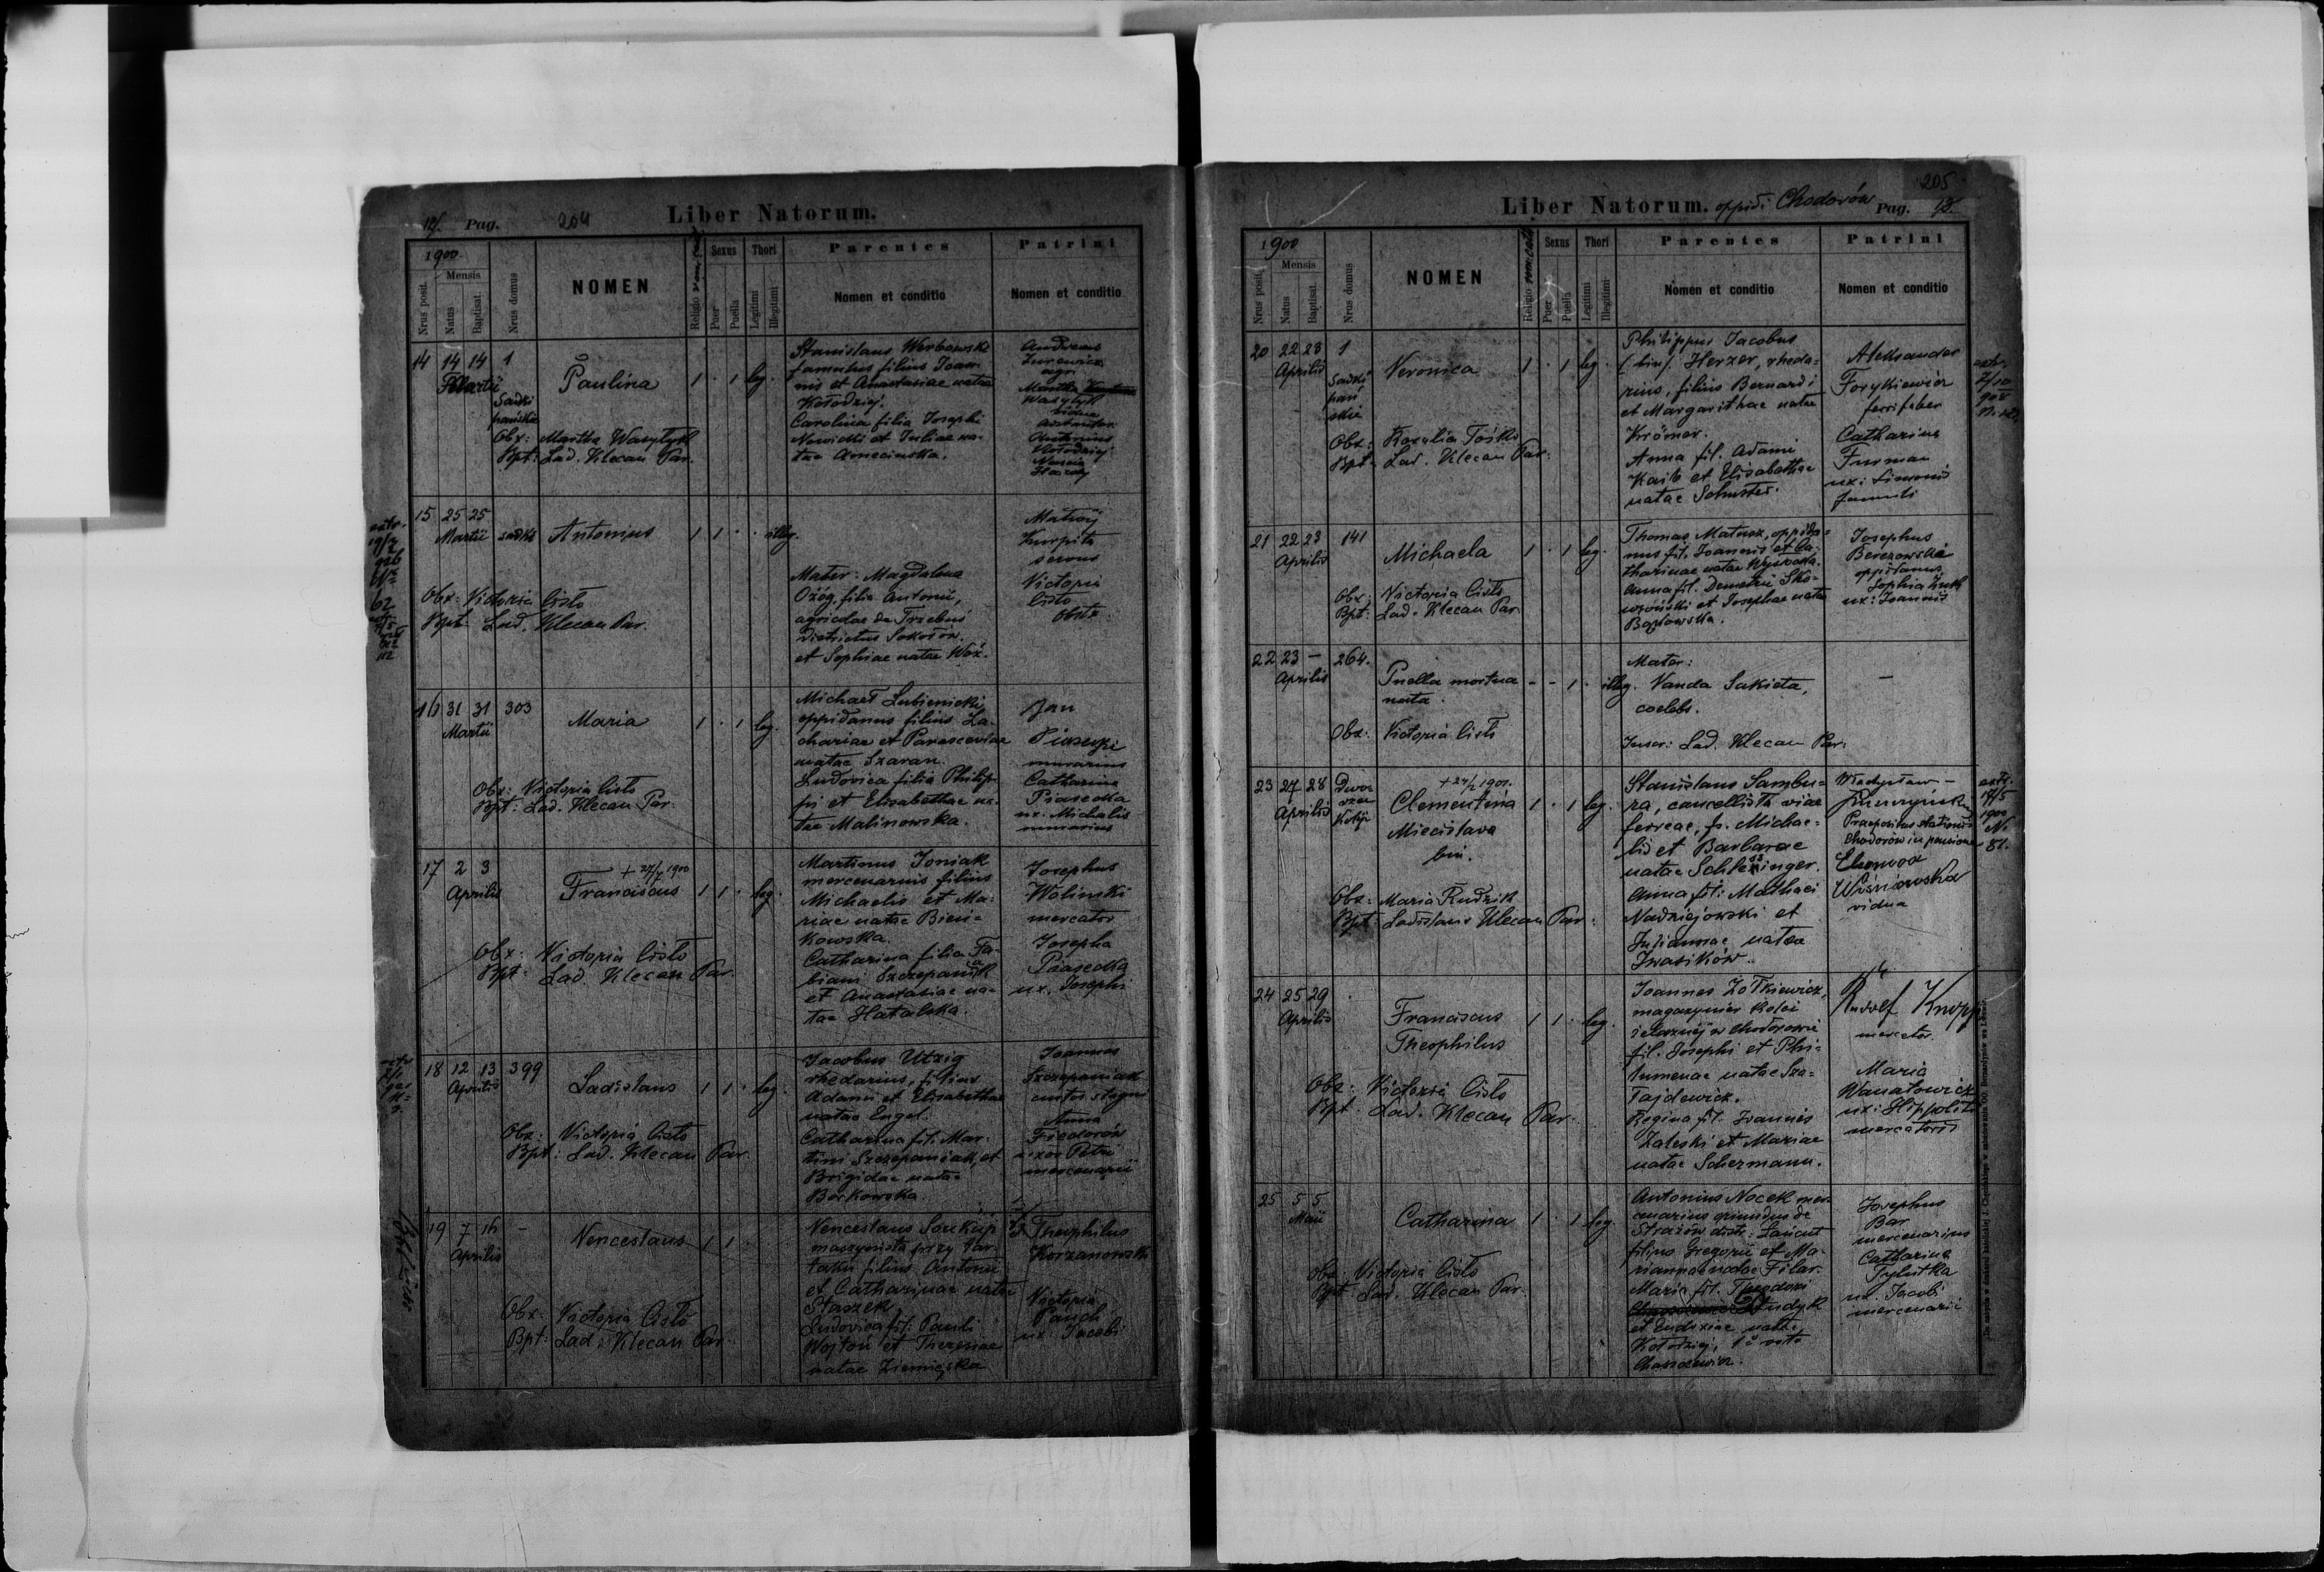 12. Pag. 204 Liber Natorum.
1900.
Mensis
Nrus posit.
Natus
Baptisat.
Nrus domus
NOMEN
Religio
Sexus
Puer
Puella
Thori
Legitimi
Illegitimi
Parentes
Nomen et conditio
Patrini
Nomen et conditio
14 14 14 1
Martii
Sadki
pańskie
Paulina 1 · 1 leg.
Obx: Martha Wasylyk
Bpt: Lad. Klecan Par.
Stanislaus Werbowski
famulus filius Joan-
nis et Anastasiae natae
Kołodziej.
Carolina filia Josephi
Nowicki et Juliae na-
tae
Andreas
Jurewicz
agr.
Martha
Wasylyk
vidua
Antonius
Kołodziej
15 25 25
Martii sadki Antonius 1 1 · · illeg.
Obx: Victoria Cisło
Bpt: Lad. Klecan Par.
Mater: Magdalena
Ożóg filia Antonii,
agricolae de Trzebuś
districtus Sokołów.
et Sophiae natae Woź.
Matwij
Kurpita
servus
Victoria
Cisło
obstx
16 31 31 303
Martii
Maria 1 · 1 leg.
Obx: Victoria Cisło
Bpt: Lad. Klecan Par.
Michael Lubienicki
oppidanus filius Za-
chariae et Parasceviae
natae Szaran.
Ludovica filia Philip-
pi et Elisabethae na-
tae Malinowska.
Jan
Piasecki
murarius
Catharina
Piasecka
ux. Michalis
murarius
17 2 3
Aprilis
+ 27/7 1900
Franciscus 1 1 · leg.
Obx: Victoria Cisło
Bpt: Lad. Klecan Par.
Martinus Joniak
mercenarius filius
Michaelis et Ma-
riae natae Bień-
kowska.
Catharina filia Fa-
biani Szczepaniak
et Anastasiae na-
tae Hatalska.
Josephus
Woliński
mercator
Josepha
Piasecka
ux. Josephi
18 12 13 399
Aprilis
Ladislaus 1 1 · leg.
Obx: Victoria Cisło
Bpt: Lad. Klecan Par.
Jacobus Utzig
rhedarius, filius
Adami et Elisabethae
natae Engel.
Catharina fil. Mar-
tini Szczepaniak, et
Brigidae natae
Borkowska.
Joannes
Szczepaniak
custos stagni
Anna
Fiedorów
uxor Petri
mercenarii
19 7 16 –
Aprilis
Venceslaus 1 1 ·
Obx: Victoria Cisło
Bpt: Lad. Klecan Par.
Venceslaus Soukup
maszynista przy tar-
taku filius Antonii
et Catharinae natae
Staszek
Ludovica fil: Pauli
Wojtoń et Theresiae
natae Ziemięska
Theophilus
Korzanowski
Victoria
Pauch
ux: Jacobi
205
Liber Natorum. oppidi Chodorów Pag. 13.
1900
Mensis
Nrus posit.
Natus
Baptisat.
Nrus domus
NOMEN
Religio rom. cath.
Sexus
Puer
Puella
Thori
Legitimi
Illegitimi
Parentes
Nomen et conditio
Patrini
Nomen et conditio
20 22 23 1
Aprilis
Sadki
pań
skie
Veronica 1 · 1 leg.
Obx: Rozalia
Bpt: Lad. Klecan Par:
Philippus Jacobus
(bin). Herzer, rheda-
rius, filius Bernardi
et Margarithae natae
Krömer.
Anna fil. Adami
Kaib et Elisabethae
natae Schuster.
Aleksander
Forytkiewicz
ferrifaber
Catharina
Furman
ux: Simonis
famuli
21 22 23 141
Aprilis
Michaela 1 · 1 leg.
Obx: Victoria Cisło
Bpt: Lad. Klecan Par.
Thomas Matusz, oppida-
nus fil. Joannis et Ca-
tharinae natae Wysocka.
Anna fil. Demetrii Sko-
et Josephae natae
Josephus
Berezowski
oppidanus
Sophia
ux: Joannis
22 23 – 264.
Aprilis
Puella mortua
nata.
– – 1 · illeg.
Obx: Victoria Cisło
Mater:
Vanda Sakieta,
coelebs.
Inscr: Lad. Klecan Par:
–
23 27 28
Aprilis
Dwo-
rzec
Kolej
+ 24/2 1901.
Clementina
Miecislava
bin.
1 · 1 leg.
Obx: Maria Rudzik
Bpt: Ladislaus Klecan Par:
Stanislaus Sambu-
ra, cancellista viae
ferreae, fs. Michae-
lis et Barbarae
natae Schlesinger.
Anna fil: Mathaei
Nadziejowski et
Juliannae natae
Iwasików.
Władysław
Praepositus stationis
Chodorów in pensione
Eleonora
Wiśniowska
vidua
extr.
17/5
1900
N.
81.
24 25 29
Aprilis
Franciscus
Theophilus
1 1 · leg.
Obx: Victoria Cisło
Bpt: Lad. Klecan Par.
Joannes Żółkiewicz,
magazynier kolei
żelaznej w Chodorowie
fil. Josephi et Phi-
lumenae natae Sza-
fajdewicz.
Regina fil. Joannis
Zaleski et Mariae
natae Schermann.
Rudolf Knopp
mercator.
Maria
Wanatowicz
ux: Hippoliti
mercatoris
25 5 5
Maii
Catharina 1 · 1 leg.
Obx: Victoria Cisło
Bpt: Lad. Klecan Par.
Antonius Nocek mer-
cenarius oriundus de
Strażów distr: Łańcut
filius Gregorii et Ma-
riannae natae Filar.
Maria fil. Theodori
et Eudoxiae natae
Kołodziej, 1º voto
Josephus
Bar
mercenarius
Catharina
ux. Jacobi
mercenarii